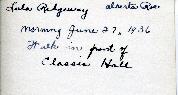 Lula Ridgeway Alberta Rose
Morning June 27, 1936
Walk in front of
Classic Hall